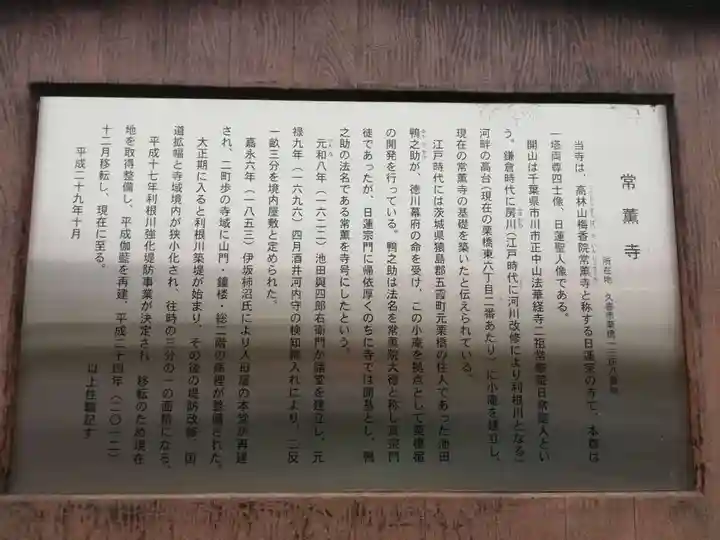 常薫寺
所在地 久喜市栗橋
当寺は、高林山梅香院常薫寺と称する日蓮宗の寺で、本尊は
一塔両尊四士像、日蓮聖人像である。
開山は千葉県市川市正中山法華経寺二祖常修院日常聖人とい
う。鎌倉時代に房川(江戸時代に河川改修により利根川となる)
河畔の高台(現在の栗橋東六丁目二番あたり)に小庵を建立し、
現在の常薫寺の基礎を築いたと伝えられている。
江戸時代には茨城県猿島郡五霞町元栗橋の住人であった池田
鴨之助が、徳川幕府の命を受け、この小庵を拠点として栗橋宿
の開発を行っている。鴨之助は法名を常薫院大徳と称し真宗門
徒であったが、日蓮宗門に帰依厚くのちに寺では開基とし、鴨
之助の法名である常薫を寺号にしたという。
元和八年(一六二二)池田與四郎右衛門が諸堂を建立し、元
禄九年(一六九六)四月酒井河内守の検知縄入れにより、二反
一畝三分を境内屋敷と定められた。
嘉永六年(一八五三)伊坂柿沼氏により八間屋の本堂が再建
され、二町歩の寺域に山門・鐘楼・総二階の庫裡が整備された。
大正期に入ると利根川築堤が始まり、その後の堤防改修、国
道拡幅と寺域境内が狭小化され、往時の三分の一の面積になる。
平成十七年利根川強化堤防事業が決定され、移転のため現在
地を取得整備し、平成伽藍を再建、平成二十四年(二〇一二)
十二月移転し、現在に至る。
以上住職記す
平成二十九年十月